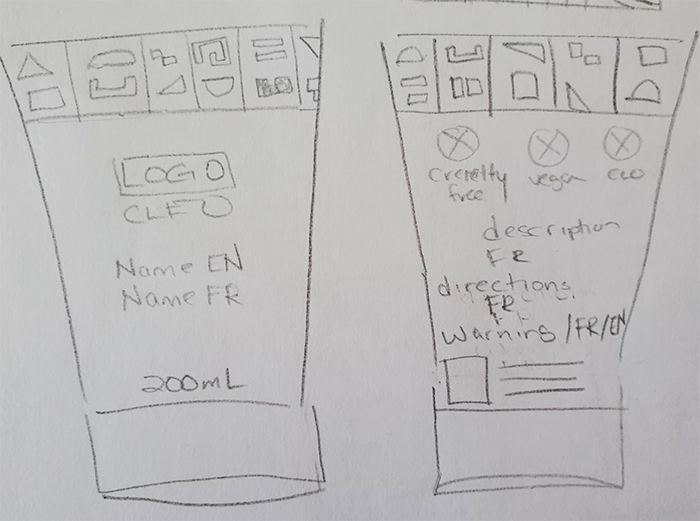 LOGO
CLEO
Name EN
Name FR
200mL
crerelty
free
vegan
eco
description
FR
directions
FR
Warning/FR/EN